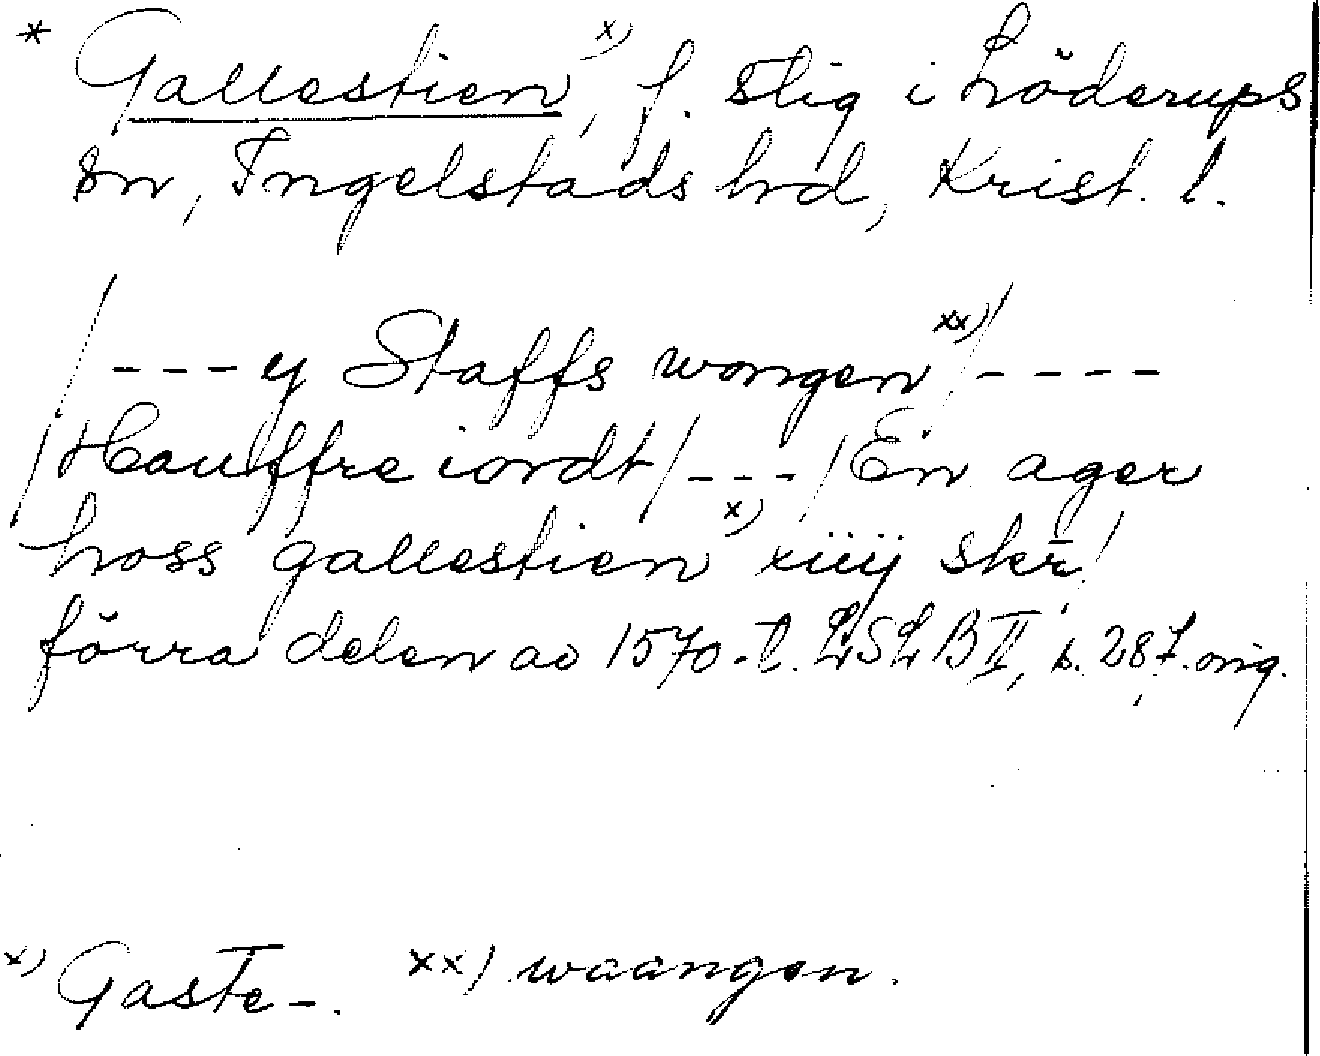 * Gallestien x), f. stig i Löderups
sn, Ingelstads hd, Krist. l.
/ - - - y Staffs wongen xx) / - - - -
/ Hauffre iordt / - - - / En ager
hoss gallestien x) xiiij skr̄ /
förra delen av 1570-t. LSLB II, s. 287. orig.
x) Gaste-. xx) waangen.